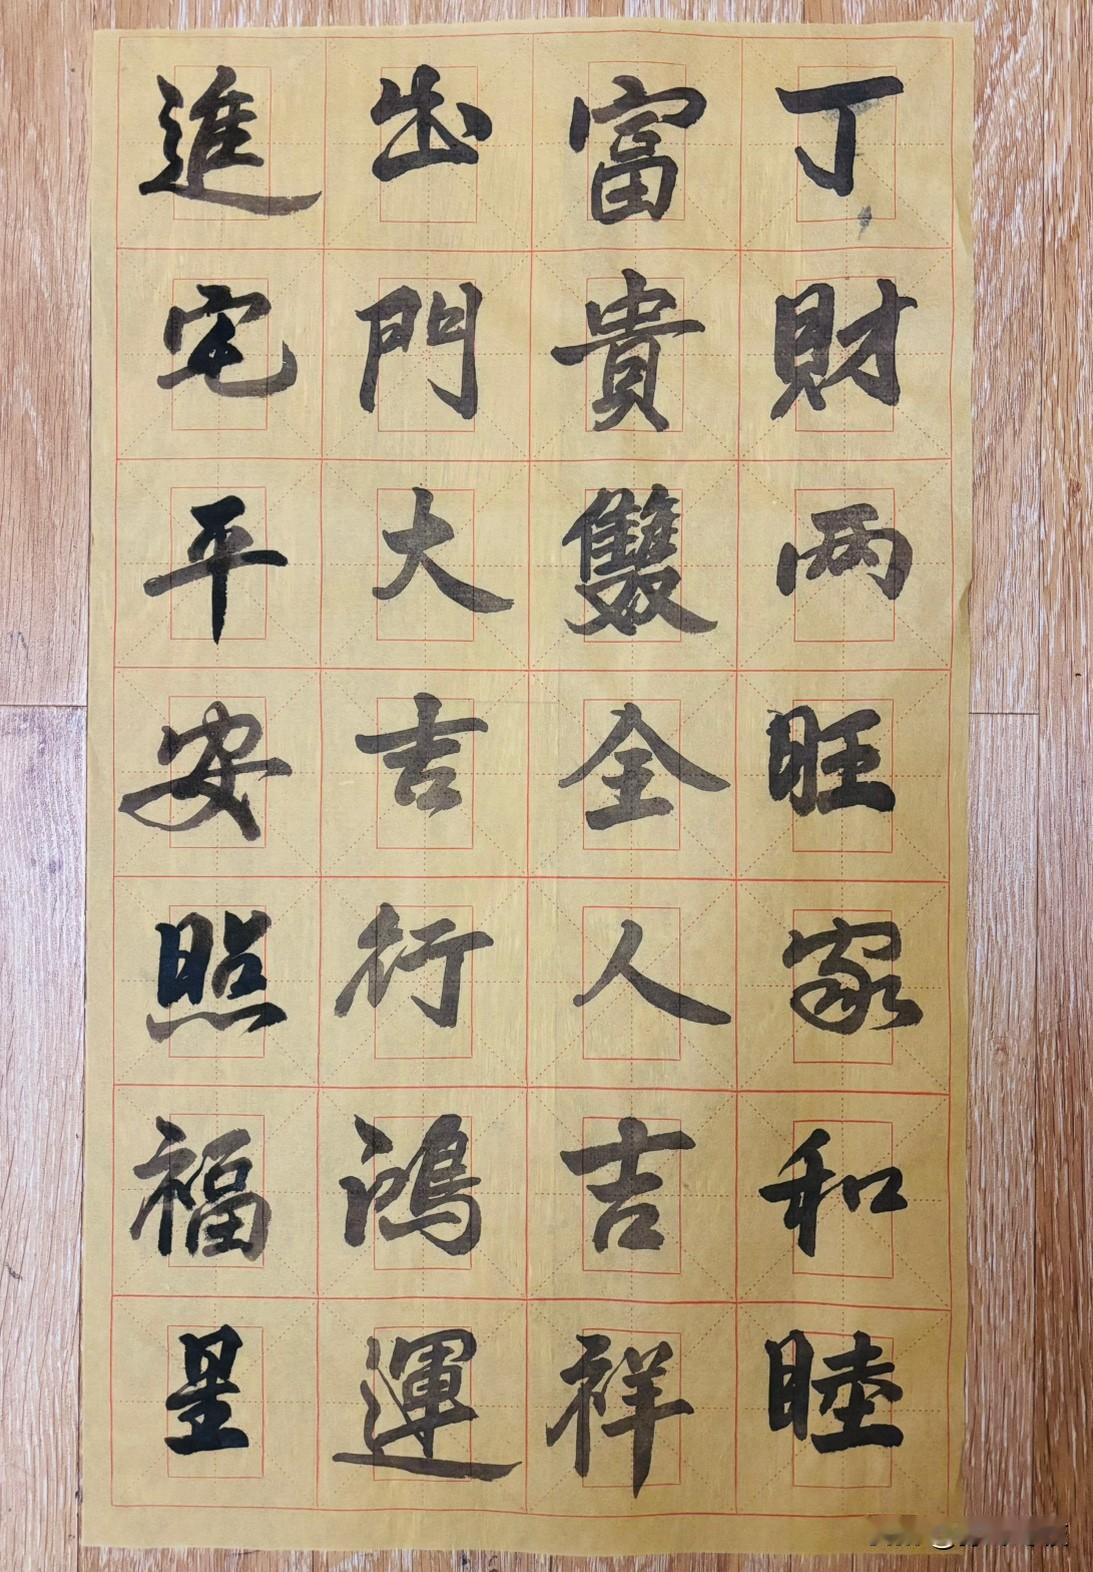 丁財兩旺家和睦
富貴雙全人吉祥
出門大吉行鴻運
進宅平安照福星